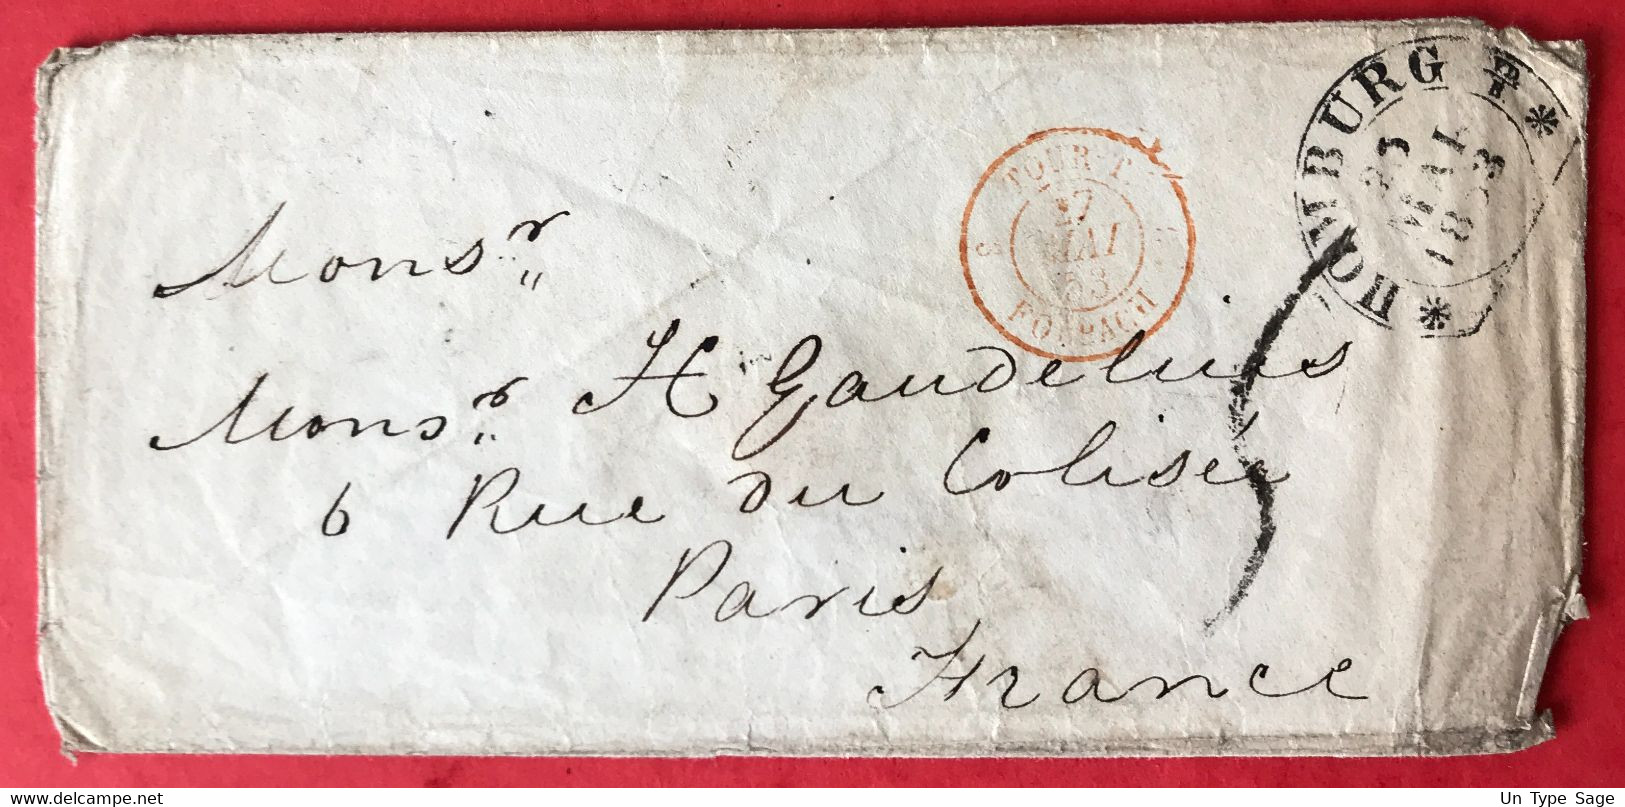 HOMBURG
25
MAI
1853
TOUR-T.
27
MAI
53
FORBACH
Monsr
Monsr H Gaudelius
6 Rue du Colisée
Paris
France
www.delcampe.net
Un Type Sage